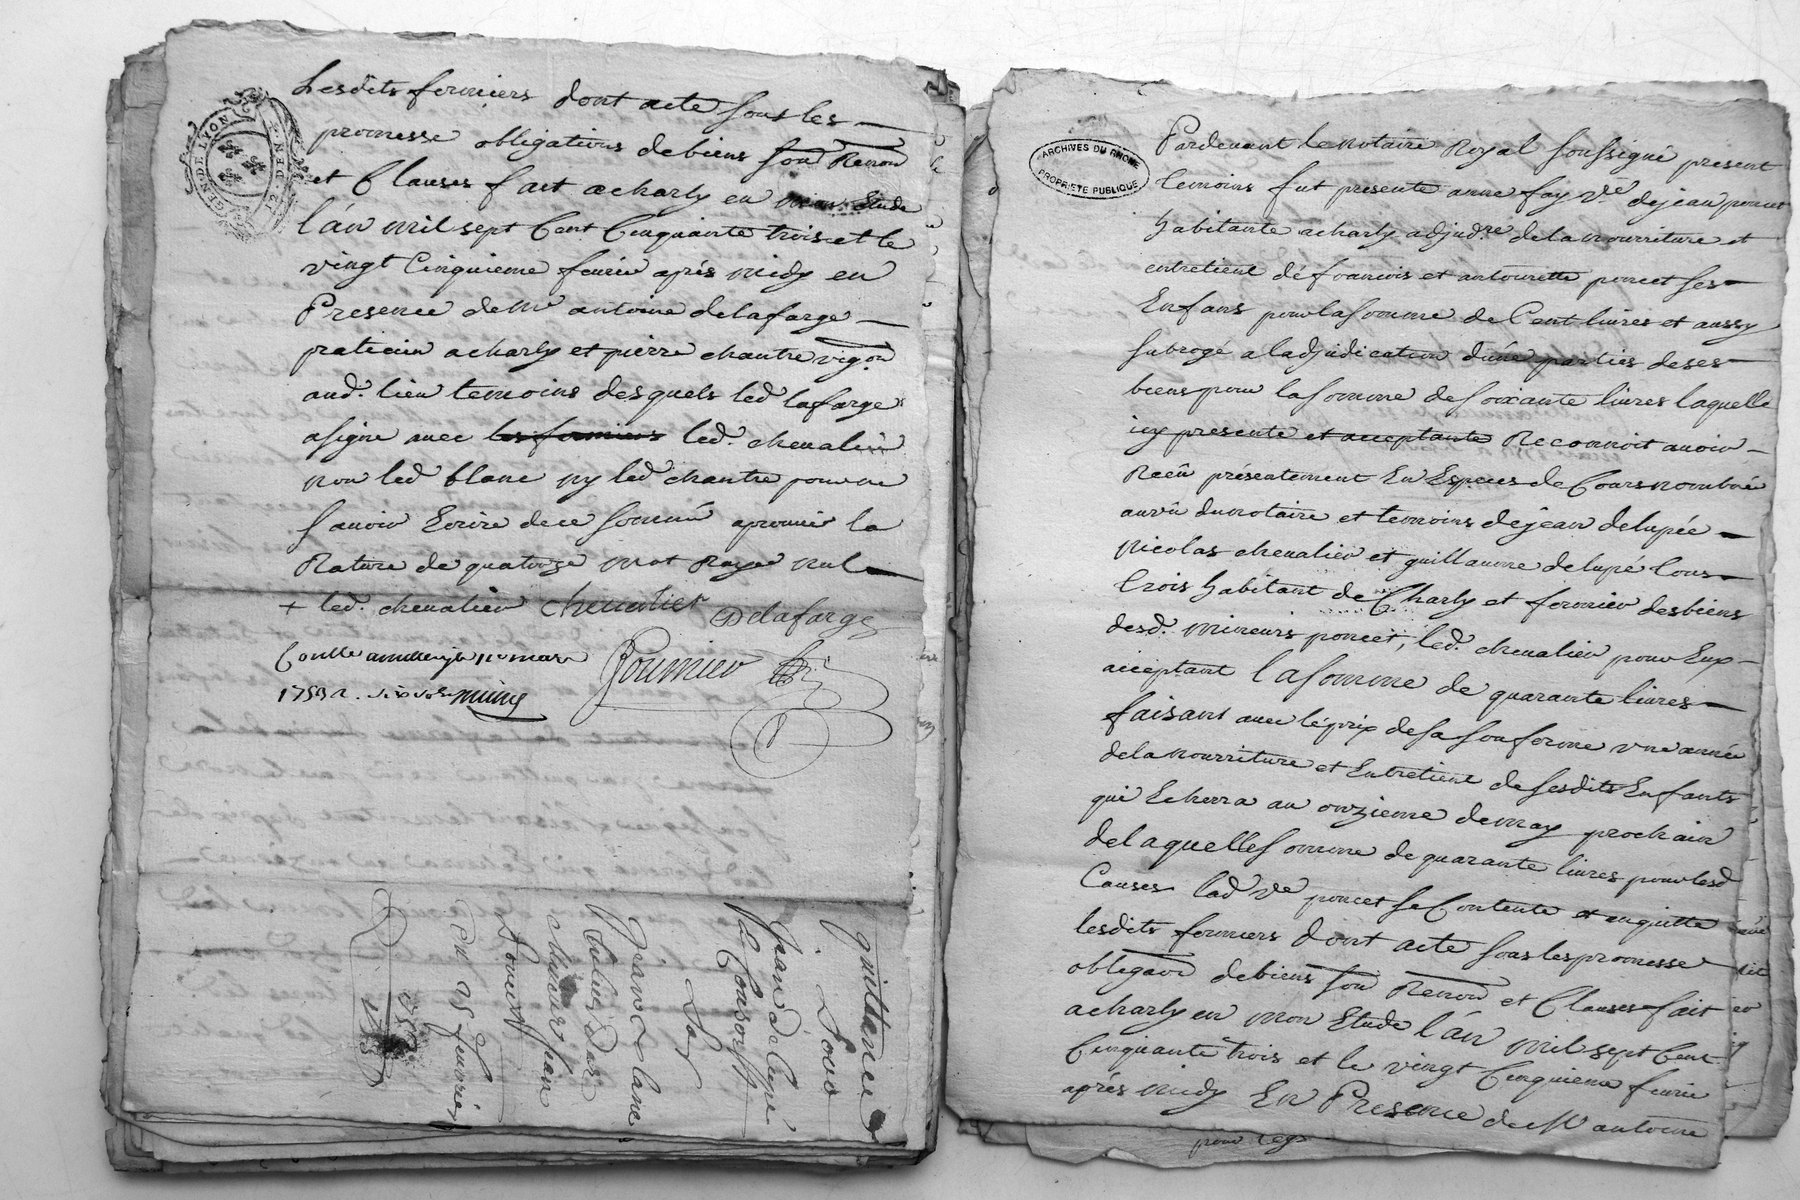 GEN. DE LYON
Lesdits fermiers dont acte sous les
promesse obligations de biens son Renon
et Clauses fait acharly en mon Etude
l'an mil sept Cent Cinquante trois et le
vingt Cinquieme feurier aprés midy en
Presence de Mr antoine delafarge
praticien acharly et pierre chantre vigon
aud. lieu temoins desquels led lafarge
asigné auec les fermiers led. cheualier
non led blanc ny led chantre pour ne
sauoir Ecrire de ce sommé aprouué la
Rature de quatorze mot Rayé nul
+ led. cheualier chevalier Delafarge
1753
Fournier
quittance
Pour
Jean delupé
& Consorts
Par
en 25 feurier
1753
ARCHIVES DU RHONE
PROPRIETE PUBLIQUE
Pardeuant le notaire Royal soussigné present
temoins fut presente anne fay Ve dejean poncet
habitante acharly adjudre dela nourriture et
entretient dé francois et antoinette poncet ses
Enfans pour la somme de Cent liures et aussy
subrogé a ladjudication dune parties de ses
biens pour la somme de soixante liures laquelle
icy presente et acceptante Reconnoit auoir
Reçû présentement En Especes de Cours nombrée
auvû du notaire et temoins de jean delupée
Nicolas cheualier et guillaume delupé tous
trois habitant de Charly et fermier des biens
desd. mineurs poncet, led. cheualier pour Eux
acceptant la somme de quarante liures
faisant auec le prix de sa sous ferme une année
dela nourriture et Entretient de sesdits Enfants
qui Echerra au onzieme de may prochain
delaquelle somme de quarante liures pour lesd
Causes lad Ve poncet se Contente et enquitte
lesdits fermiers dont acte sous les promesse
obligaon de biens son Renon et Clauses fait
acharly en mon Etude l'an mil sept Cent
Cinquante trois et le vingt Cinquieme feurier
aprés midy En Presence de Mr antoine